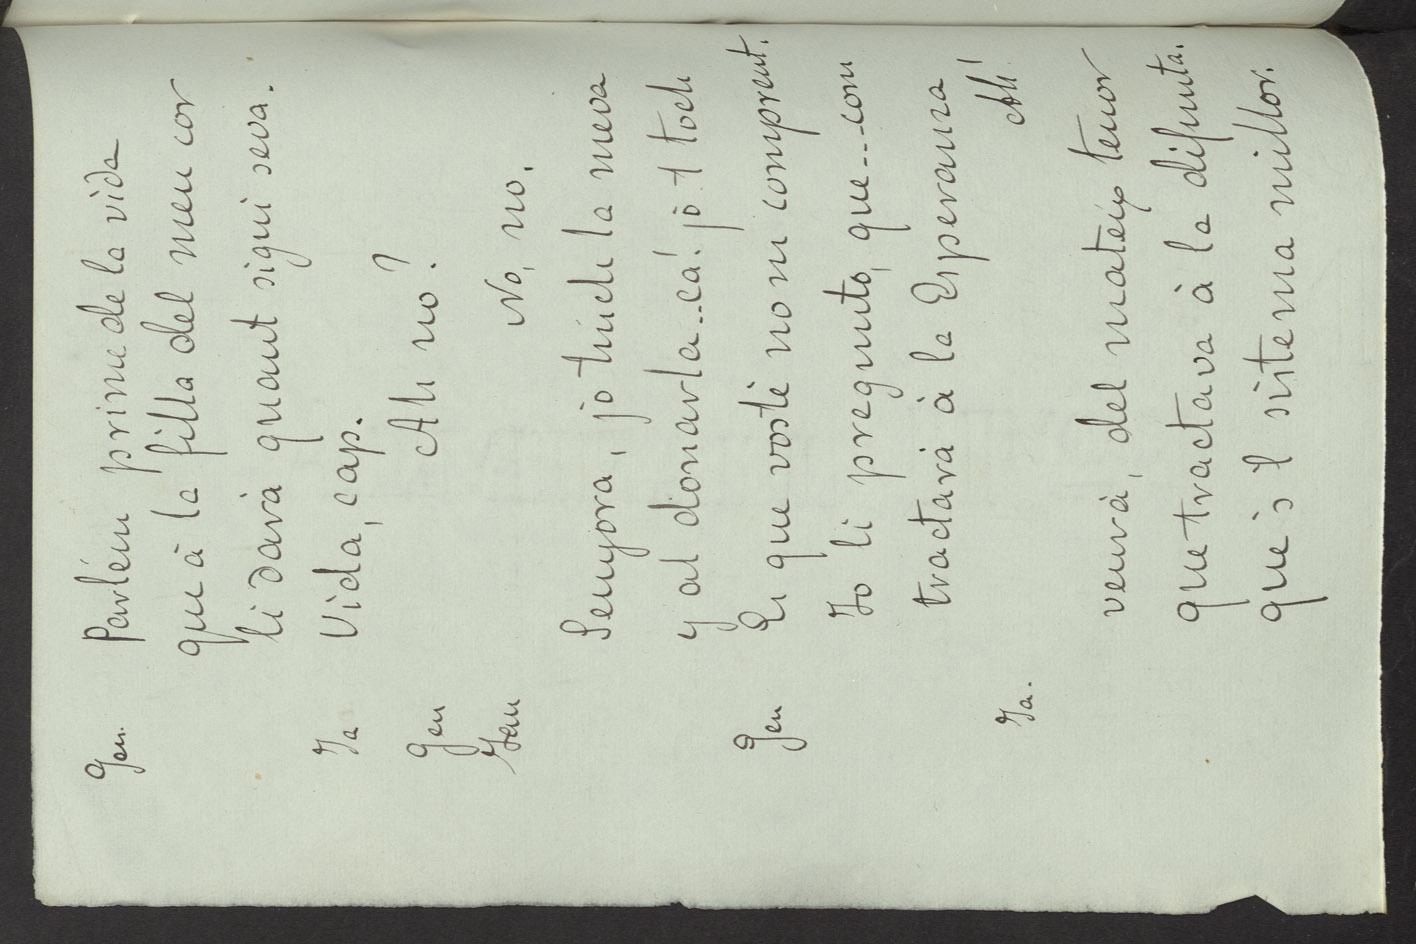 Gen. Parlém prime de la vida
que à la filla del meu cor
li darà quant sigui seva.
Ja Vida, cap.
Gen Ah no?
Jem No, no.
Senyora, jo tinch la meva
y al donarla...cá! jo-t toch
Gen Es que vostè no m comprent.
Jo li pregunto, que...com
tractarà à la Esperanza
Ja. Ah!
veurà, del mateix tenor
que tractava à la difunta.
que és l sistema millor.